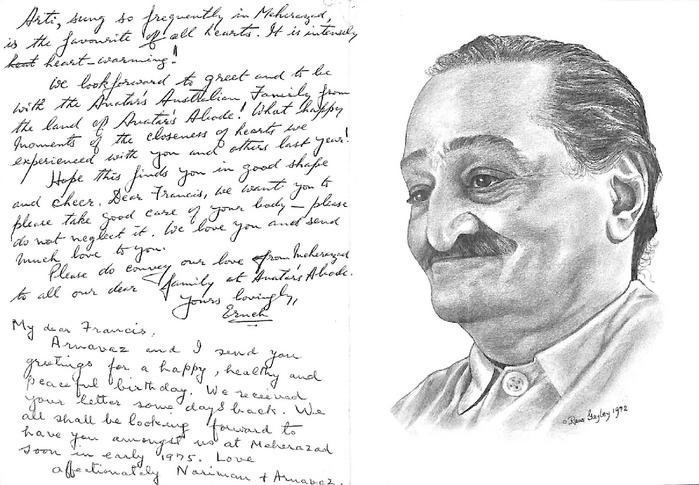 Arti, sung so frequently in Meherazad,
is the favourite of all hearts. It is intensely
heart-warming!
We look forward to greet and to be
with the Avatar's Australian Family from
the land of Avatar's Abode! What happy
moments of the closeness of hearts we
experienced with you and others last year!
Hope this finds you in good shape
and cheer. Dear Francis, we want you to
please take good care of your body – please
do not neglect it. We love you and send
much love to you.
Please do convey our love from Meherazad
to all our dear family at Avatar's Abode.
Yours lovingly,
Eruch
My dear Francis,
Arnavaz and I send you
greetings for a happy, healthy and
peaceful birthday. We received
your letter some days back. We
all shall be looking forward to
have you amongst us at Meherazad
soon in early 1975. Love
affectionately Nariman + Arnavaz.
1972